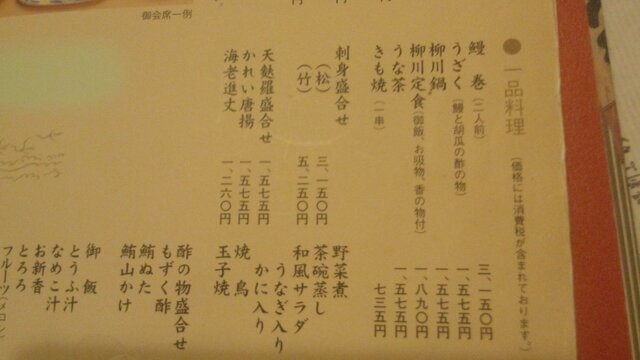 ●一品料理（価格には消費税が含まれております。）
鰻巻（二人前） 三、一五〇円
うざく（鰻と胡瓜の酢の物） 一、五七五円
柳川鍋 一、五七五円
柳川定食（御飯、お吸物、香の物付） 一、八九〇円
うな茶 一、五七五円
きも焼（一串） 七三五円
刺身盛合せ
（松） 三、一五〇円
（竹） 五、二五〇円
天麩羅盛合せ 一、五七五円
かれい唐揚 一、五七五円
海老進丈 一、二六〇円
野菜煮
茶碗蒸し
和風サラダ
うなぎ入り
かに入り
焼鳥
玉子焼
酢の物盛合せ
もずく酢
鮪ぬた
鮪山かけ
御飯
とうふ汁
なめこ汁
お新香
とろろ
フルーツ（メロン
御会席一例